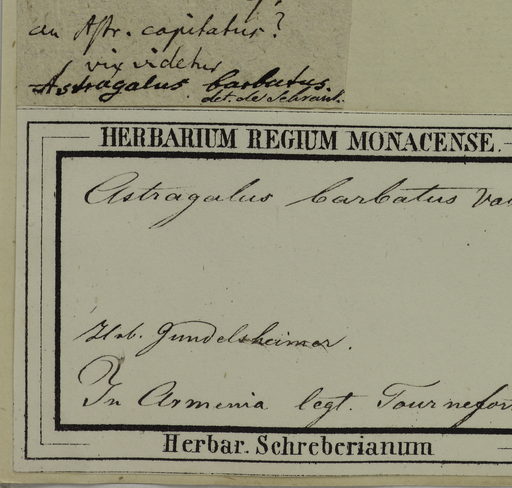 an Astr. capitatus?
vix videtur
Astragalus barbatus.
det. de Schrank.
HERBARIUM REGIUM MONACENSE.
Astragalus barbatus
Hrb. Gundelsheimer.
In Armenia legt. Tournefor
Herbar. Schreberianum